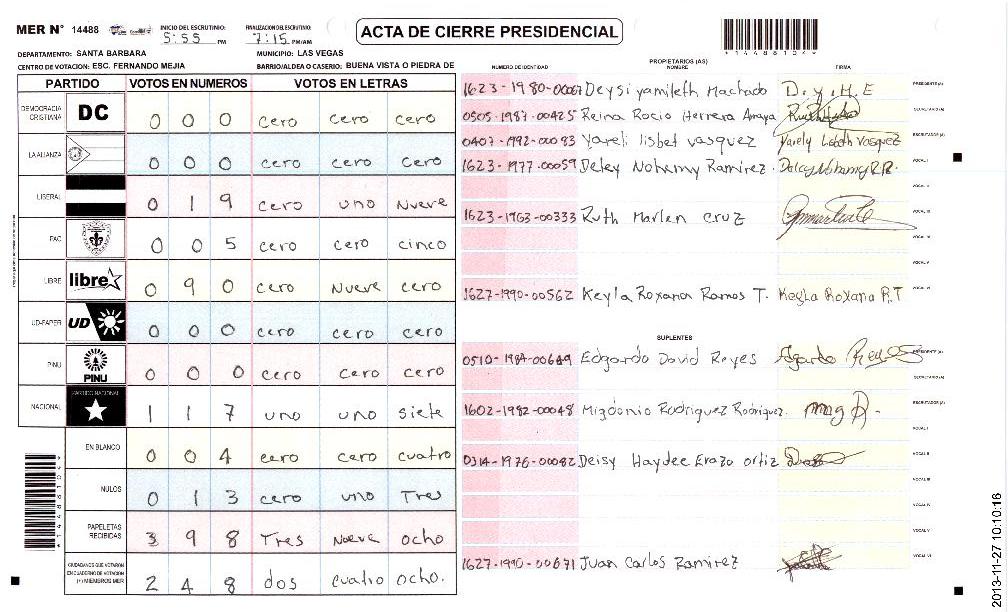 MER Nº 14488 INICIO DEL ESCRUTINIO: 5:55 PM FINALIZACION DEL ESCRUTINIO: 7:15 PM/AM
ACTA DE CIERRE PRESIDENCIAL
*14488104*
DEPARTAMENTO: SANTA BARBARA MUNICIPIO: LAS VEGAS
CENTRO DE VOTACION: ESC. FERNANDO MEJIA BARRIO/ALDEA O CASERIO: BUENA VISTA O PIEDRA DE
PARTIDO VOTOS EN NUMEROS VOTOS EN LETRAS
DEMOCRACIA CRISTIANA DC 0 0 0 cero cero cero
LA ALIANZA 0 0 0 cero cero cero
LIBERAL 0 1 9 cero uno Nueve
PAC 0 0 5 cero cero cinco
LIBRE libre 0 9 0 cero Nueve cero
UD-FAPER UD 0 0 0 cero cero cero
PINU PINU 0 0 0 cero cero cero
NACIONAL PARTIDO NACIONAL 1 1 7 uno uno siete
EN BLANCO 0 0 4 cero cero cuatro
NULOS 0 1 3 cero uno Tres
PAPELETAS RECIBIDAS 3 9 8 Tres Nueve ocho
CIUDADANOS QUE VOTARON EN CUADERNO DE VOTACION (+) MIEMBROS MER 2 4 8 dos cuatro ocho.
PROPIETARIOS (AS)
NUMERO DE IDENTIDAD NOMBRE FIRMA
1623-1980-0006 Deysi yamileth Machado D.y.H.E PRESIDENTE (A)
0505-1987-00425 Reina Rocio Herrera Amaya SECRETARIO (A)
0407-1992-00083 Yareli lisbet vasquez Yarely Lisbeth Vasquez ESCRUTADOR (A)
1623-1977-00059 Deley Nohemy Ramirez. VOCAL I
VOCAL II
1623-1963-00333 Ruth Marlen cruz VOCAL III
VOCAL IV
VOCAL V
1627-1990-00562 Keyla Roxana Ramos T. Keyla Roxana R.T VOCAL VI
SUPLENTES
0510-1984-00649 Edgardo David Reyes Reyes PRESIDENTE (A)
SECRETARIO (A)
1602-1982-00048 Migdonio Rodriguez Rodriguez. ESCRUTADOR (A)
VOCAL I
0314-1976-00082 Deisy Haydee Erazo ortiz VOCAL II
VOCAL III
VOCAL IV
VOCAL V
1627-1990-00671 Juan Carlos Ramirez VOCAL VI
2013-11-27 10:10:16